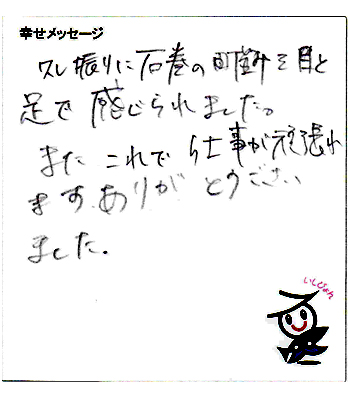 幸せメッセージ
久し振りに石巻の町並みを目と
足で感じられました。
また これで 仕事が頑張れ
ます。ありがとうござい
ました.
いしぴょん